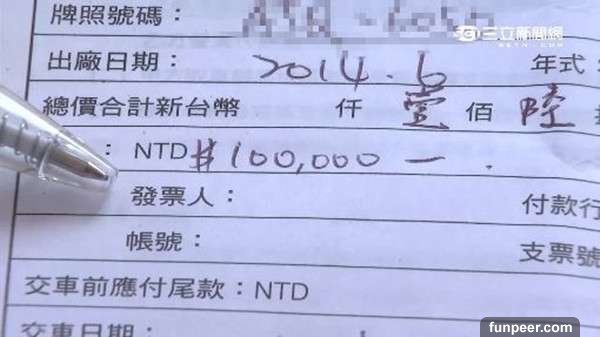 牌照號碼：
三立新聞網
SETN.COM
出廠日期： 2014.6 年式
總價合計新台幣 仟 壹 佰 陸
： NTD $100,000 —
發票人： 付款行
帳號： 支票號
交車前應付尾款：NTD
交車日期：
funpeer.com